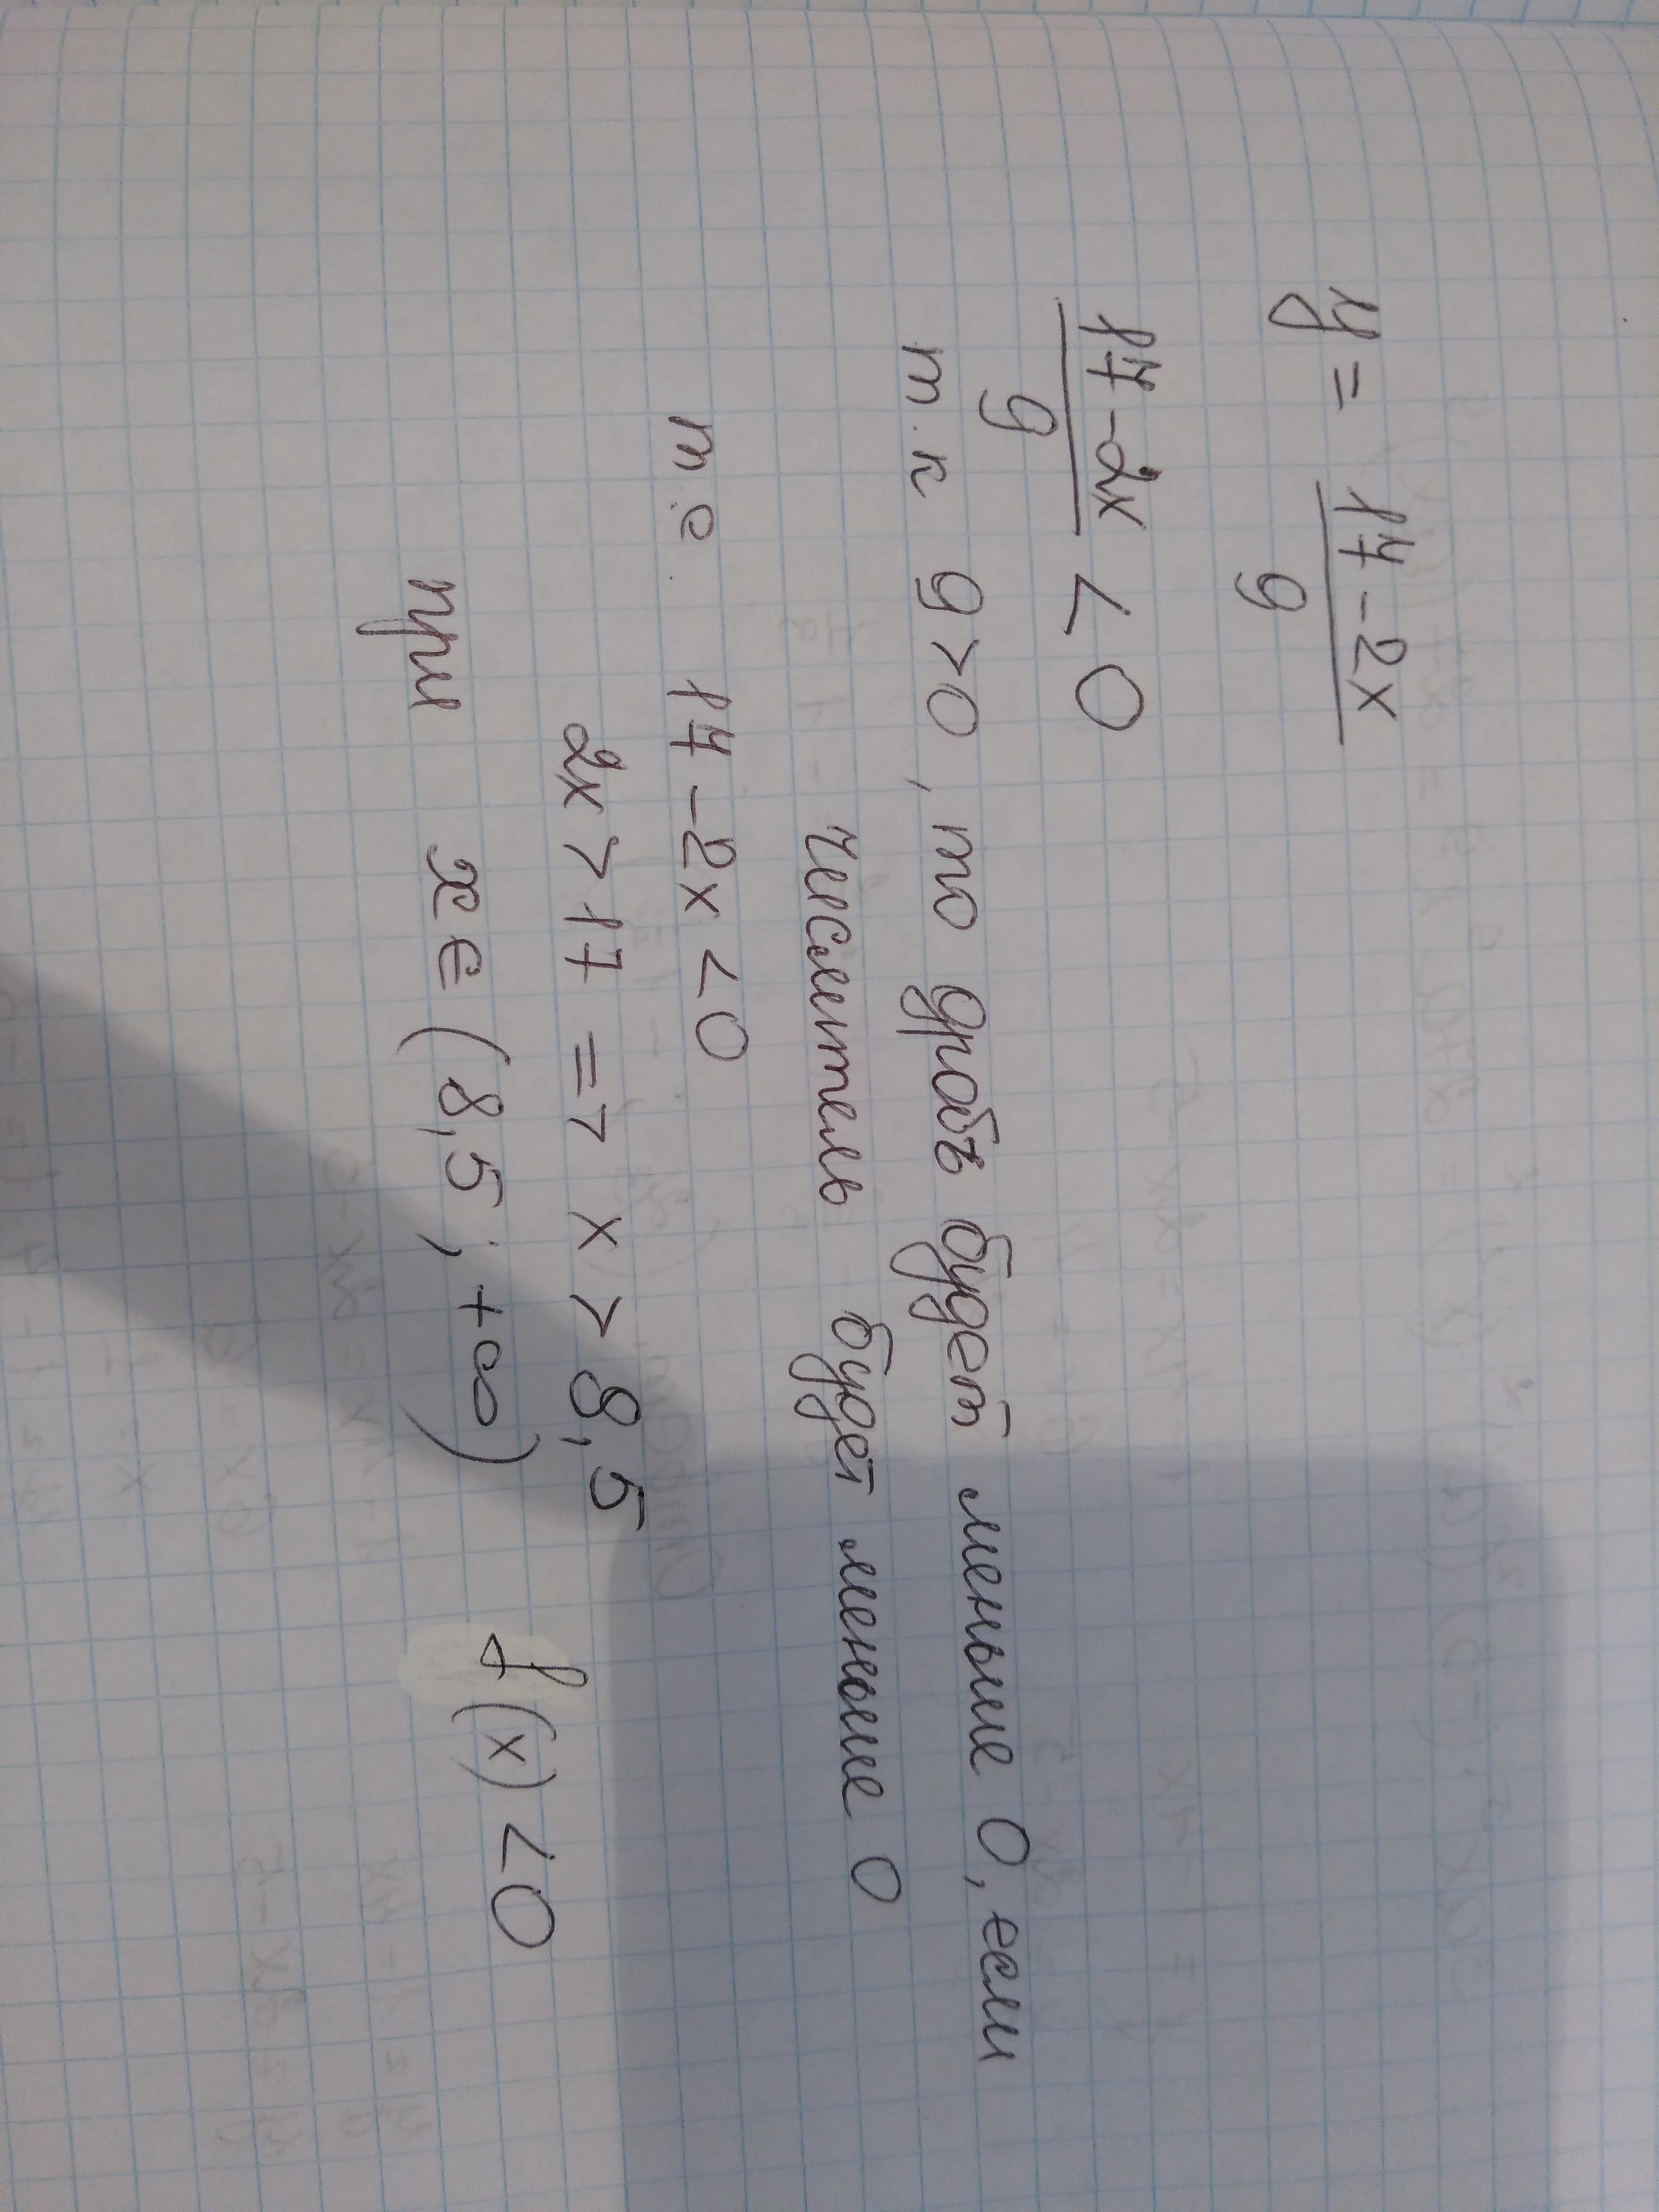 y = 17-2x / 9
17-2x / 9 < 0
т.к 9>0, то дробь будет меньше 0, если
числитель будет меньше 0
т.е. 17-2x<0
2x>17 => x>8,5
при x∈(8,5; +∞) f(x)<0